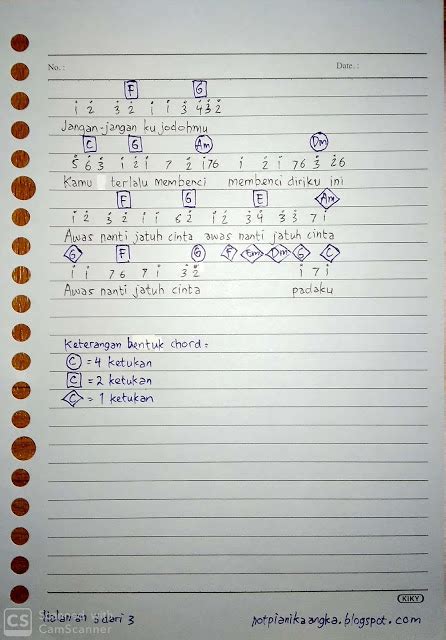 No. :
Date. :
F G
1̇ 2̇ 3̇ 2̇ 1̇ 1̇ 3̇ 4̇ 3̇ 2̇
Jangan-jangan ku jodohmu
C G Am Dm
5̇ 6 3̇ 1̇ 2̇ 1̇ 7 2̇ 1̇76 1̇ 2̇ 1̇ 76 3̇ 26
Kamu terlalu membenci membenci diriku ini
F G E Am
1̇ 2̇ 3̇ 2̇ 1̇ 1̇ 6 2̇ 1̇ 2̇ 3̇ 4̇ 3̇ 3̇ 7 1̇
Awas nanti jatuh cinta awas nanti jatuh cinta
G F G F Em Dm G C
1̇ 1̇ 76 7 1̇ 3̇ 2̇ 1̇ 7 1̇
Awas nanti jatuh cinta padaku
Keterangan bentuk chord :
C = 4 ketukan
C = 2 ketukan
C = 1 ketukan
KIKY
CS Scanned with CamScanner
Halaman 3 dari 3
notpianikaangka.blogspot.com